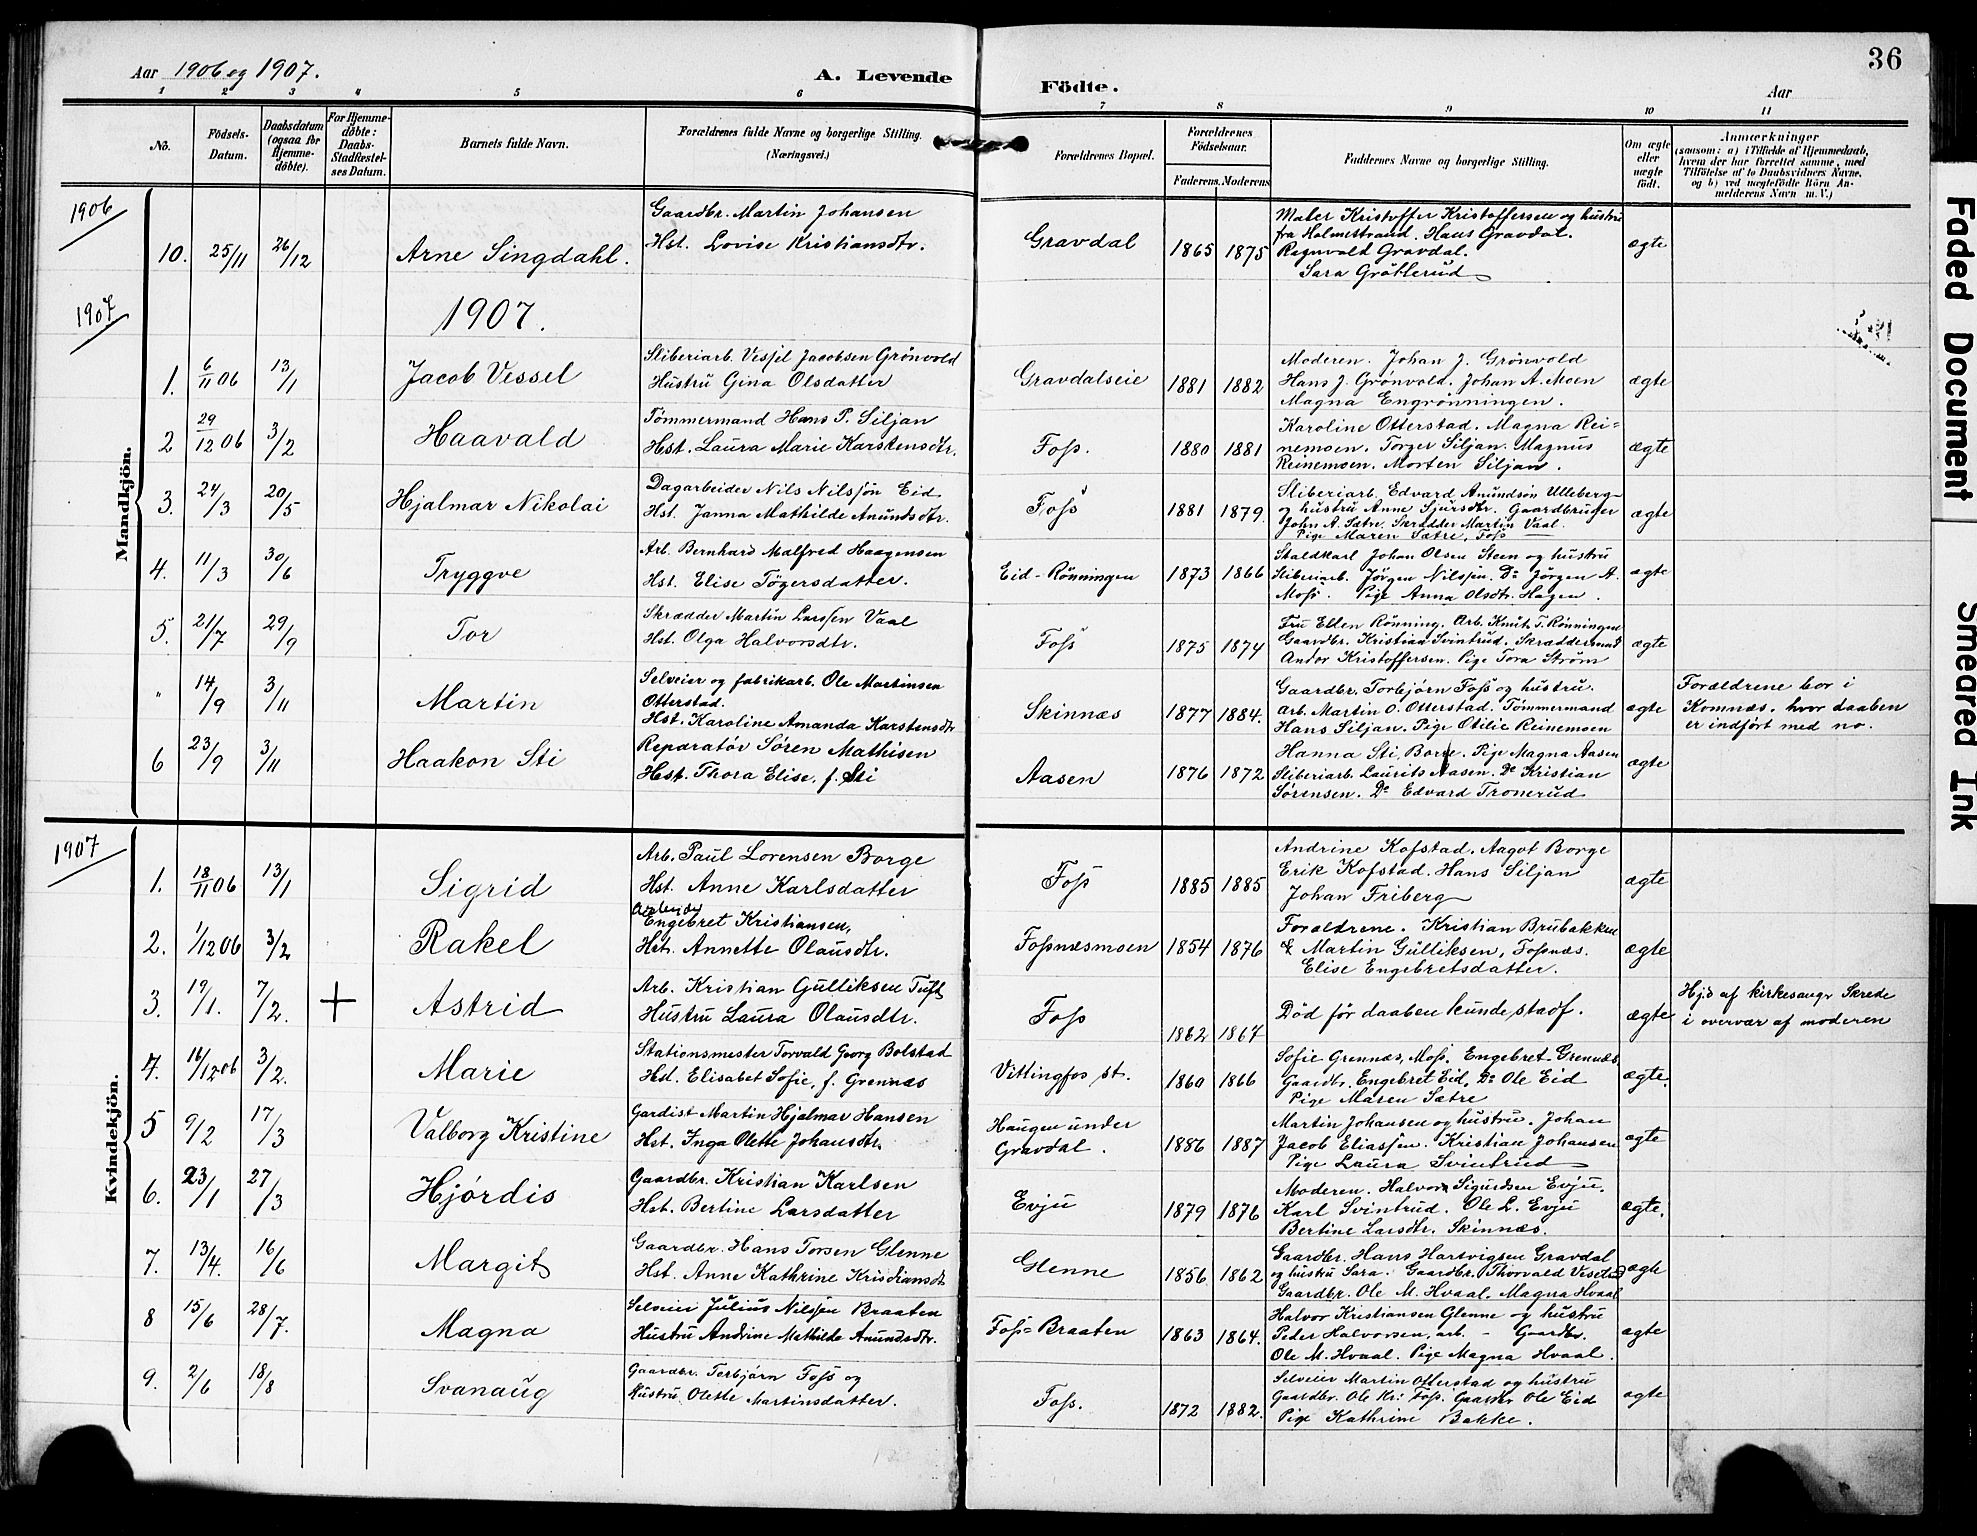 36
Aar 1906 og 1907.
A. Levende
Födte.
Aar
1 2 3 4 5 6 7 8 9 10 11
No.
Födsels-Datum.
Daabsdatum (ogsaa for Hjemme-döbte).
For Hjemme-döbte: Daabs-Stadfæstel-ses Datum.
Barnets fulde Navn.
Forældrenes fulde Navne og borgerlige Stilling.
(Næringsvei.)
Forældrenes Bopæl.
Forældrenes Födselsaar.
Faderens. Moderens.
Faddernes Navne og borgerlige Stilling.
Om ægte eller uægte födt.
Anmærkninger
(saasom: a) i Tilfælde af Hjemmedaab, hvem der har forrettet samme, med Tilföielse af to Daabsvidners Navne, og b) ved uægtefödte Börn An-melderens Navn m. V.)
Mandkjön.
1906
10. 25/11 26/12 Arne Singdahl.
Gaardbr. Martin Johansen
Hst. Lovise Kristiansdtr.
Gravdal 1865 1875
Maler Kristoffer Kristoffersen og hustru
fra Holmestrand. Hans Gravdal.
Ragnvald Gravdal.
Sara Grötterud
ægte
1907
1907.
1. 6/11 06 13/1 Jacob Vessel
Sliberiarb. Vessel Jacobsen Grönvold
Hustru Gina Olsdatter
Gravdalseie 1881 1882
Moderen. Johan J. Grönvold
Hans J. Grönvold. Johan A. Moen
Magna Engrönningen.
ægte
2 29/12 06 3/2 Haavald
Tömmermand Hans P. Siljan
Hst. Laura Marie Karstensdtr.
Foss. 1880 1881
Karoline Otterstad. Magna Rei=
nemoen. Torger Siljan. Magnus
Reinemoen. Morten Siljan.
ægte
3. 24/3 20/5 Hjalmar Nikolai
Dagarbeider Nils Nilssön Eid
Hst. Janna Mathilde Anundsdtr.
Foss 1881 1879
Sliberiarb. Edvard Amundsön Ulleberg
og hustru Anne Sjursdtr. Gaardbruger
John A. Sætre. Skrædder Martin Vaal
Pige Maren Sætre, Foss
ægte
4. 11/3 30/6 Tryggve
Arb. Bernhard Malfred Haagensen
Hst. Elise Tögersdatter.
Eid-Rönningen 1873 1866
Staldkarl Johan Olsen Steen og hustru
Sliberiarb. Jörgen Nilssen. Do Jörgen A.
Moss. Pige Anna Olsdtr. Hagen.
ægte
5. 21/7 29/9 Tor
Skrædder Martin Larssen Vaal
Hst. Olga Halvorsdtr.
Foss 1875 1874
Fru Ellen Rönning. Arb. Knut T. Rönningen
Gaardbr. Kristian Svintrud. Skræddersvend
Andor Kristoffersen. Pige Tora Ström
ægte
" 14/9 3/11 Martin
Selveier og fabrikarb. Ole Martinsen
Otterstad.
Hst. Karoline Amanda Karstensdtr
Skinnæs 1877 1884.
Gaardbr. Torbjörn Foss og hustru.
arb. Martin O. Otterstad. Tömmermand
Hans Siljan. Pige Otilie Reinemoen
ægte
Forældrene bor i
Komnæs, hvor daaben
er indfört med no.
6 23/9 3/11 Haakon Sti
Reparatör Sören Mathisen
Hst. Thora Elise, f. Sti
Aasen 1876 1872
Hanna Sti, Borre. Pige Magna Aasen
Sliberiarb. Laurits Aasen. Do Kristian
Sörensen. Do Edvard Tronerud
ægte
Kvindekjön.
1907
1. 18/11 06 13/1 Sigrid
Arb. Paul Lorensen Borge
Hst. Anne Karlsdatter
Foss 1885 1885
Andrine Kofstad. Aagot Borge
Erik Kofstad. Hans Siljan
Johan Friberg
ægte
2. 1/12 06 3/2 Rakel
Arbeider
Engebret Kristiansen,
Hst. Annette Olausdtr.
Fossnæsmoen 1854 1876
Forældrene. Kristian Brubakken
& Martin Gulliksen, Fossnæs.
Elise Engebretsdatter.
ægte
3. 19/1. 7/2. + Astrid
Arb. Kristian Gulliksen Tuft
Hustru Laura Olausdtr.
Foss 1862 1867
Död för daaben kunde stadf.
ægte
Hjd af kirkesangr Skrede
i overvær af moderen
4. 16/12 06 3/2. Marie
Stationsmester Torvald Georg Bolstad
Hst. Elisabet Sofie, f. Grennæs
Vittingfos st. 1860 1866
Sofie Grennæs, Moss. Engebret Grennæs
Gaardbr. Engebret Eid, Do Ole Eid
Pige Maren Sætre
ægte.
5 9/2 17/3 Valborg Kristine
Gardist Martin Hjalmar Hansen
Hst. Inga Olette Johansdtr.
Haugen under
Gravdal. 1886 1887
Martin Johansen og hustru. Johan
Jacob Eliassen. Kristian Johansen
Pige Laura Svintrud
ægte
6. 23/1 27/3 Hjördis
Gaardbr. Kristian Karlsen
Hst. Bertine Larsdatter
Evju 1879 1876
Moderen. Halvor Sigurdsen Evju.
Karl Svintrud. Ole L. Evju
Bertine Larsdtr. Skinnæs.
ægte.
7. 13/4. 16/6 Margit
Gaardbr. Hans Torsen Glenne
Hst. Anne Kathrine Kristiansdt
Glenne 1856 1862
Gaardbr. Hans Hartvigsen Gravdal
og hustru Sara. Gaardbr. Thorvald Veselrud
Gaardbr. Ole M. Hvaal. Magna Hvaal
ægte
8 15/6 28/7. Magna
Selveier Julius Nilssen Braaten
Hustru Andrine Mathilde Anundsdtr.
Foss=Braaten 1863 1864.
Halvor Kristiansen Glenne og hustru
Peder Halvorsen, arb. - Gaardbr.
Ole M. Hvaal. Pige Magna Hvaal.
ægte
9. 2/6 18/8 Svanaug
Gaardbr. Torbjörn Foss og
Hustru Olette Martinsdatter.
Foss. 1872 1882.
Selveier Martin Otterstad og hustru
Gaardbr. Ole Kr: Foss. Gaardbr Ole Eid
Pige Kathrine Bakke.
ægte
Faded Document
Smeared Ink